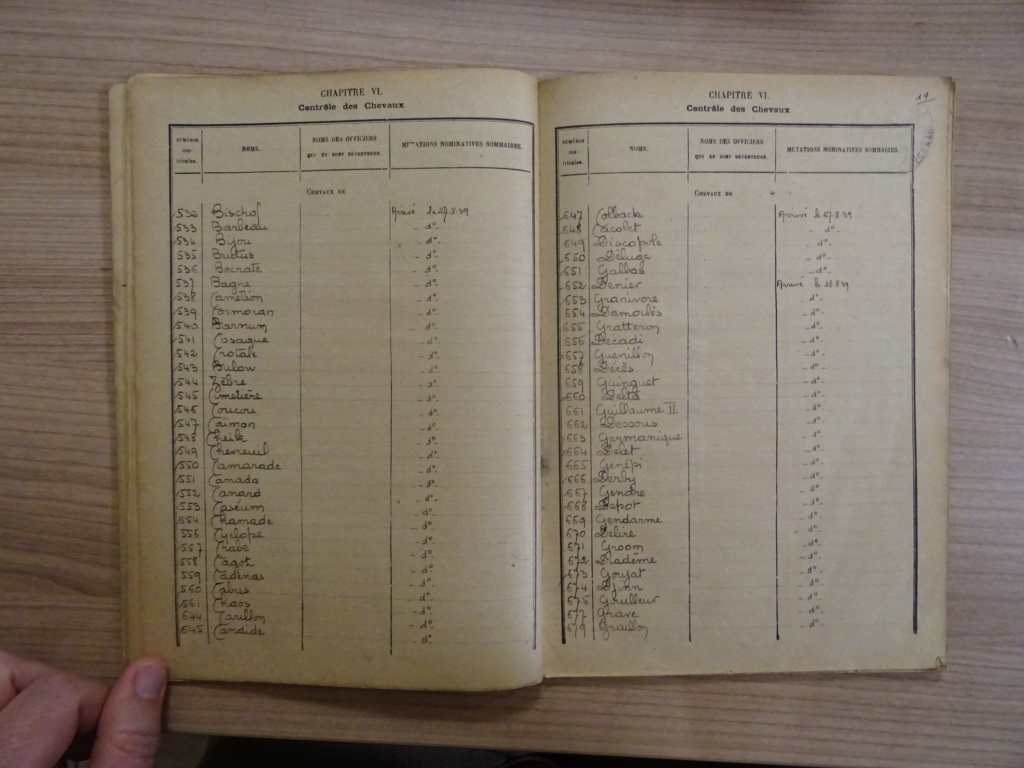 CHAPITRE VI.
Contrôle des Chevaux
NUMÉROS matricules. NOMS. NOMS DES OFFICIERS QUI EN SONT DÉTENTEURS. MUTATIONS NOMINATIVES SOMMAIRES.
CHEVAUX DE
532 Bischof Arrivé le 27.8.39
533 Barbeau - d° -
534 Bijou - d° -
535 Brutus - d° -
536 Bocrate - d° -
537 Bagne - d° -
538 Camélion - d° -
539 Cormoran - d° -
540 Barnum - d° -
541 Cosaque - d° -
542 Crotale - d° -
543 Bulow - d° -
544 Zèbre - d° -
545 Cimetière - d° -
546 Coucou - d° -
547 Caïman - d° -
548 Cheik - d° -
549 Chevreuil - d° -
550 Camarade - d° -
551 Canada - d° -
552 Canard - d° -
553 Caseum - d° -
554 Chamade - d° -
556 Cyclope - d° -
557 Crabe - d° -
558 Cagot - d° -
559 Cadenas - d° -
560 Cabris - d° -
561 Chaos - d° -
644 Carillon - d° -
645 Candide - d° -
19
CHAPITRE VI.
Contrôle des Chevaux.
NUMÉROS matricules. NOMS. NOMS DES OFFICIERS QUI EN SONT DÉTENTEURS. MUTATIONS NOMINATIVES SOMMAIRES.
CHEVAUX DE
647 Colback Arrivé le 27.8.39
648 Cacolet - d° -
649 Discopole - d° -
650 Déluge - d° -
651 Galbas - d° -
652 Denier Arrivé le 28.8.39
653 Granivore - d° -
654 Damoclès - d° -
655 Gratteron - d° -
656 Décadi - d° -
657 Guenillon - d° -
658 Décès - d° -
659 Guinguet - d° -
660 Delta - d° -
661 Guillaume II - d° -
662 Dessous - d° -
663 Germanique - d° -
664 Délet - d° -
665 Génépi - d° -
666 Derby - d° -
667 Gendre - d° -
668 Dépot - d° -
669 Gendarme - d° -
670 Délire - d° -
671 Groom - d° -
672 Diadème - d° -
673 Goujat - d° -
674 Djinn - d° -
675 Goulleur - d° -
677 Grave - d° -
679 Graillon - d° -